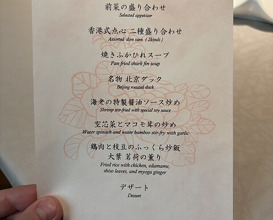 前菜の盛り合わせ
Selected appetizer
香港式点心 二種盛り合わせ
Assorted dim sum ( 2kinds )
焼きふかひれスープ
Pan fried shark fin soup
名物 北京ダック
Beijing roasted duck
海老の特製醤油ソース炒め
Shrimp sau-teed with special soy sauce
空芯菜とマコモ茸の炒め
Water spinach and water bamboo stir-fry with garlic
鶏肉と枝豆のふっくら炒飯
大葉 茗荷の薫り
Fried rice with chicken, edamame,
shiso leaves, and myoga ginger
デザート
Dessert